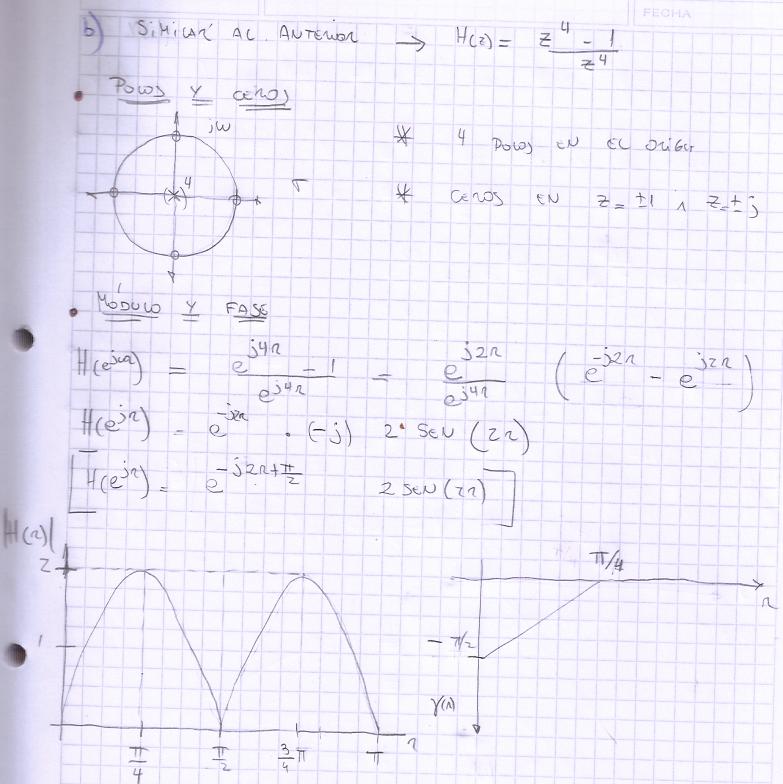 FECHA
b) SIMILAR AL ANTERIOR → H(z) = (z^4 - 1) / z^4
• POLOS Y CEROS
jω
4
σ
* 4 POLOS EN EL ORIGEN
* CEROS EN z = ±1 ∧ z = ±j
• MÓDULO Y FASE
H(e^{jΩ}) = (e^{j4Ω} - 1) / e^{j4Ω} = e^{j2Ω} / e^{j4Ω} (e^{-j2Ω} - e^{j2Ω})
H(e^{jΩ}) = e^{-j2Ω} . (-j) 2 SEN (2Ω)
[H(e^{jΩ}) = e^{-j2Ω+π/2} 2 SEN(2Ω)]
|H(Ω)|
2
1
π/4 π/2 3/4 π π Ω
π/4
Ω
-π/2
φ(Ω)